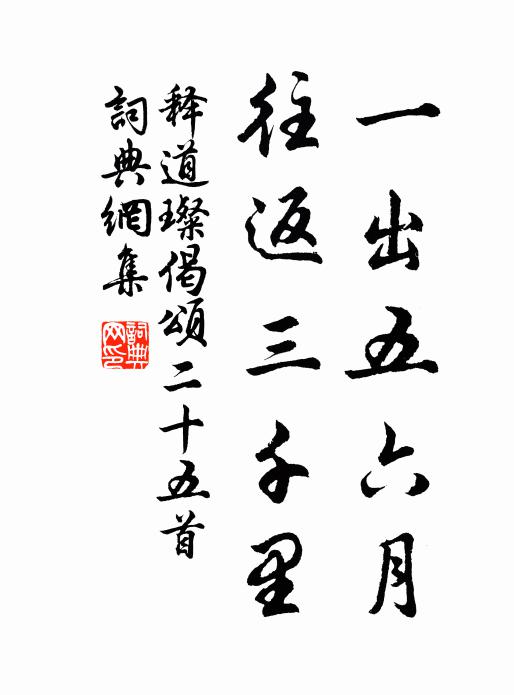 一出五六月
往返三千里
释道璨偈頌二十五首
詞典網集
詞典网印